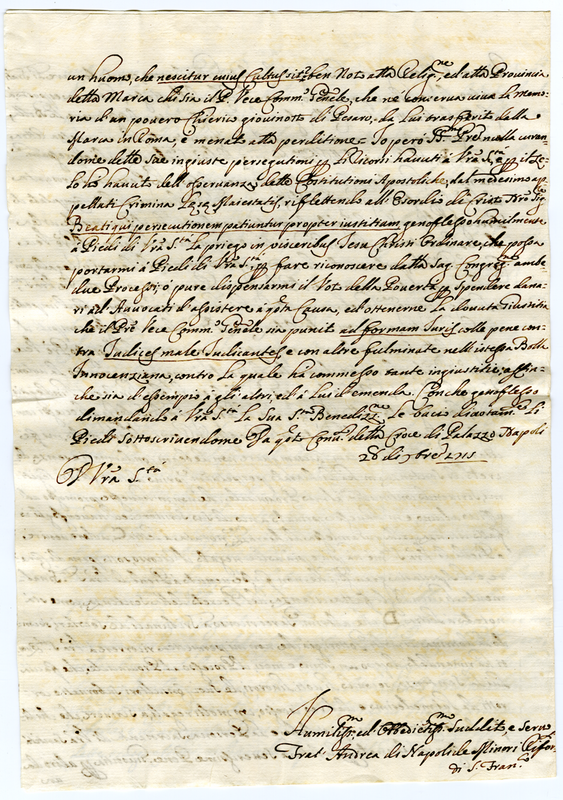 un huomo, che nescitur cuius Cultus sit; ben Noto alla Relig.ne, ed alla Provincia
della Marca chi sia il P. Vece Comm.o Genele, che né conserva viva la memo-
ria d'un povero Chierico giovinotto di Pesaro, da lui trasferito dalla
Marca in Roma, e menato alla perditione. Io però B.mo Pre nella
delle Sue ingiuste persegutioni p li Ricorsi havuti á Vra S.tá, e p il Ze-
lo há havuto dell'osservanza delle Costitutioni Apostoliche, dal medesimo ap-
pellati Crimina Lesæ Maiestatis, riflettendo all'Esordio di Cristo Nro Sig.re
Beati qui persecutionem patiuntur propter iustitiam, genoflesso humilmente
á Piedi di Vra S.tá La priego in visceribus Iesu Christi Ordinare, che possa
portarmi á Piedi di Vra S.tá p fare riconoscere dalla Sag. Congreg.ne ambe-
due Processi, ó pure dispensarmi il Voto della Povertá p spendere dana-
ri ad Avvocati d'assistere á qsta Causa, ed ottenerne La dovuta Giustitia
che il Pre Vece Comm.o Genele sia punit.o ad formam Iuris colle pene con-
tra Iudices male Iudicantes e con altre fulminate nell'istessa Bolla
Innocenziana, contro La quale há commesso tante ingiustitie, affin-
che sia d'essempio á gl'altri, ed á Lui d'emenda. Con che genoflesso
dimandando á Vra S.tá La Sua S.ta Benedizz.ne Le bacio Li
Piedi Sottoscrivendome Da qsto Conv.to della Croce di Palazzo Napoli
28 di 7bre 1715
D Vra S.tá
Humiliss.mo ed Obbedientiss.mo Suddito, e Servo
Frat' Andrea di Napoli de Minori Rifor.
di S. Fran.o